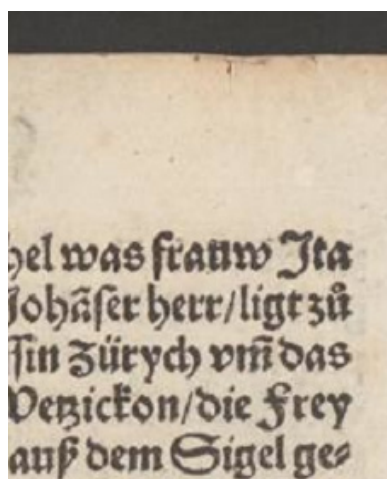 hel was frauw Ita
Johãser herr/ligt zů
ſin Zürych vm̃ das
Wetzickon/die Frey
auß dem Sigel ge⸗